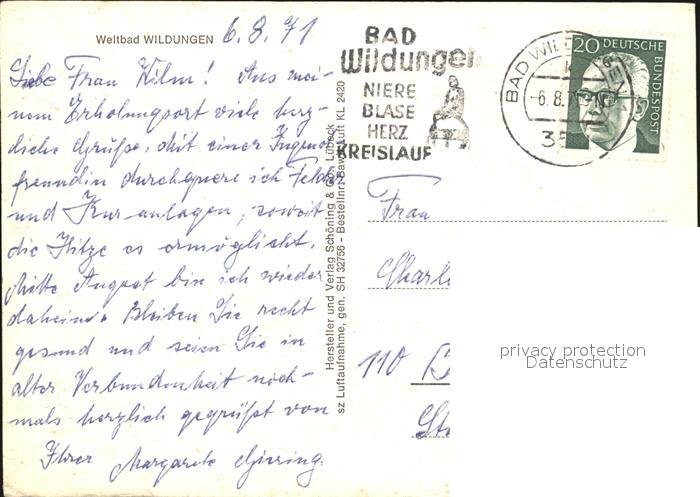 Weltbad WILDUNGEN 6.8.71
Liebe Frau Wilm! Aus mei-
nem Erholungsort viele herz-
liche Grüße. Mit einer Jugend
freundin durchquere ich Felder
und Kuranlagen, soweit
die Hitze es ermöglicht.
Mitte August bin ich wieder
daheim. Bleiben Sie recht
gesund und seien Sie in
alter Verbundenheit noch-
mals herzlich gegrüßt von
Ihrer Margarete
Hersteller und Verlag Schöning & Co., Lübeck
sz Luftaufnahme, gen. SH 32756 - Bestellnr. Bawi Luft KL 2420
BAD
Wildungen
NIERE
BLASE
HERZ
KREISLAUF
BAD WIL
-6.8.7
35
20 DEUTSCHE
BUNDESPOST
Frau
Charl
110
privacy protection
Datenschutz